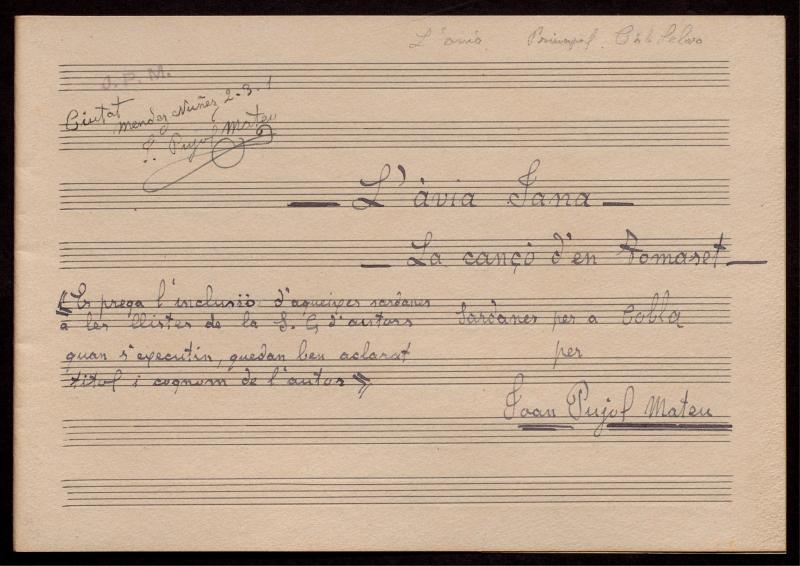 L'àvia Principal
J. P. M.
Ciutat
Mendez Nuñez 2-3-1
J. Pujol Mateu
L'àvia Jana
La cançó d'en Tomaset
"Es prega l'inclusió d'aqueixes sardanes
a les llistes de la S. G d'autors
quan s'executin, quedan ben aclarat
títol i cognom de l'autor"
Sardanes per a Cobla
per
Joan Pujol Mateu